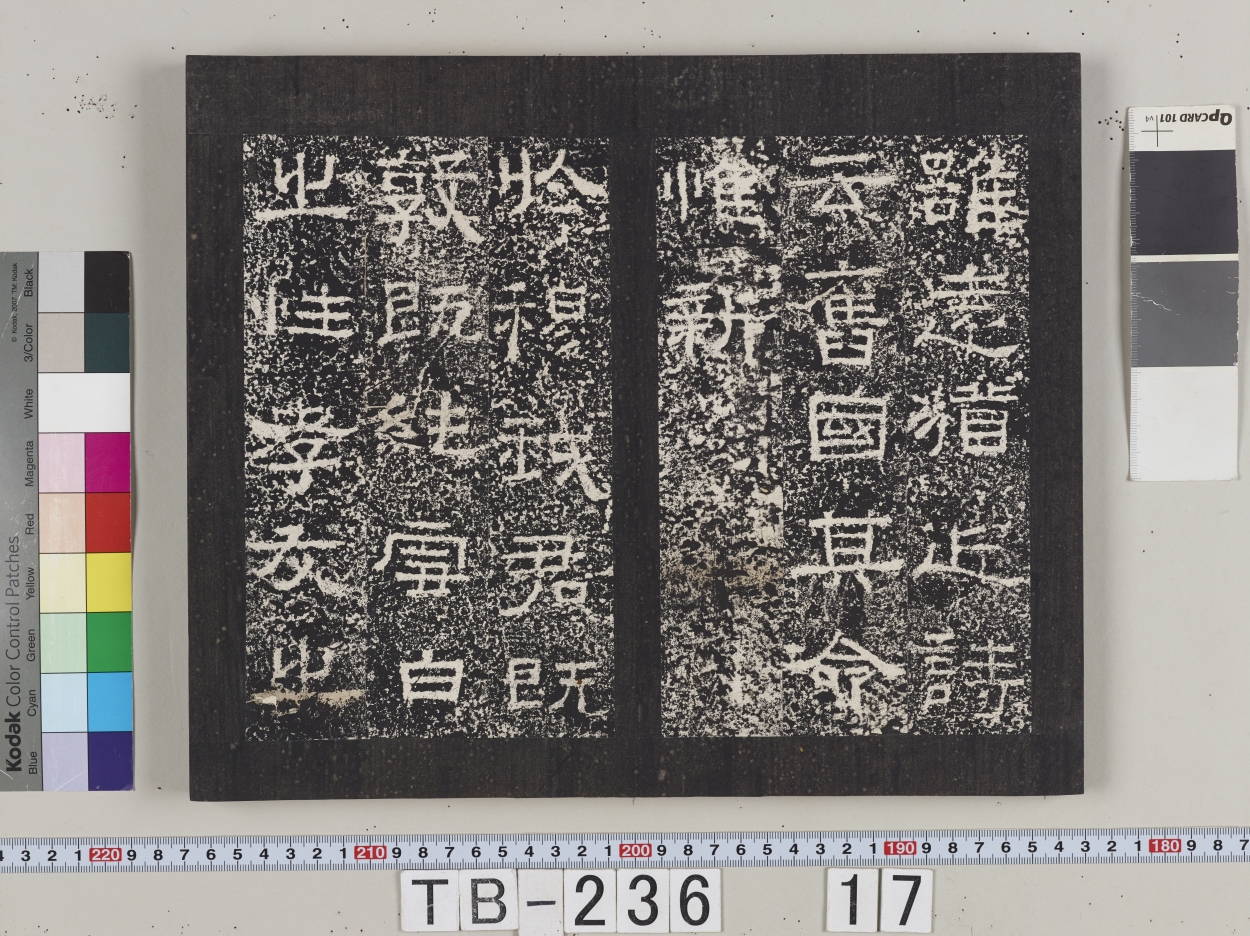 雖遠猶近詩
云舊國其命
惟新
於穆我君既
敦既純雪白
之性孝友之
QPCARD 101 v4
Kodak Color Control Patches
© Kodak, 2007 TM: Kodak
Blue Cyan Green Yellow Red Magenta White 3/Color Black
4 3 2 1 220 9 8 7 6 5 4 3 2 1 210 9 8 7 6 5 4 3 2 1 200 9 8 7 6 5 4 3 2 1 190 9 8 7 6 5 4 3 2 1 180 9 8 7
TB-236 17